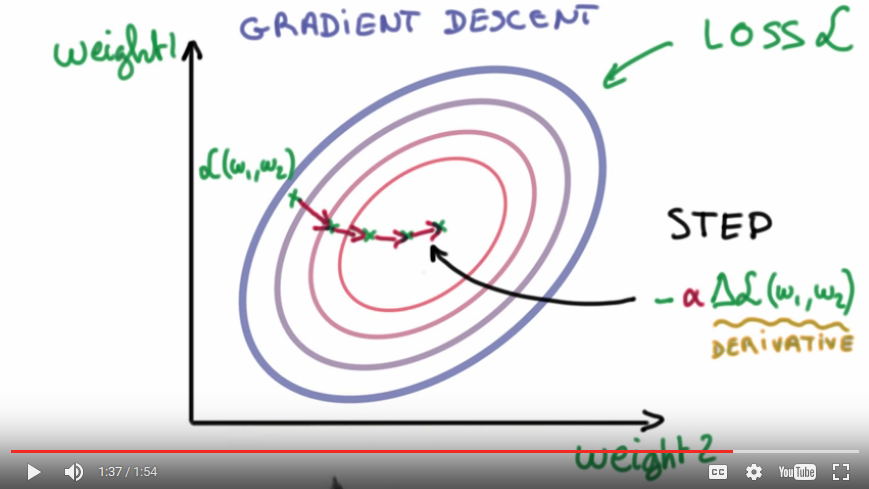 GRADIENT DESCENT
weight1
LOSS ℒ
ℒ(w₁,w₂)
STEP
- α Δℒ(w₁,w₂)
DERIVATIVE
weight2
1:37 / 1:54
CC
YouTube